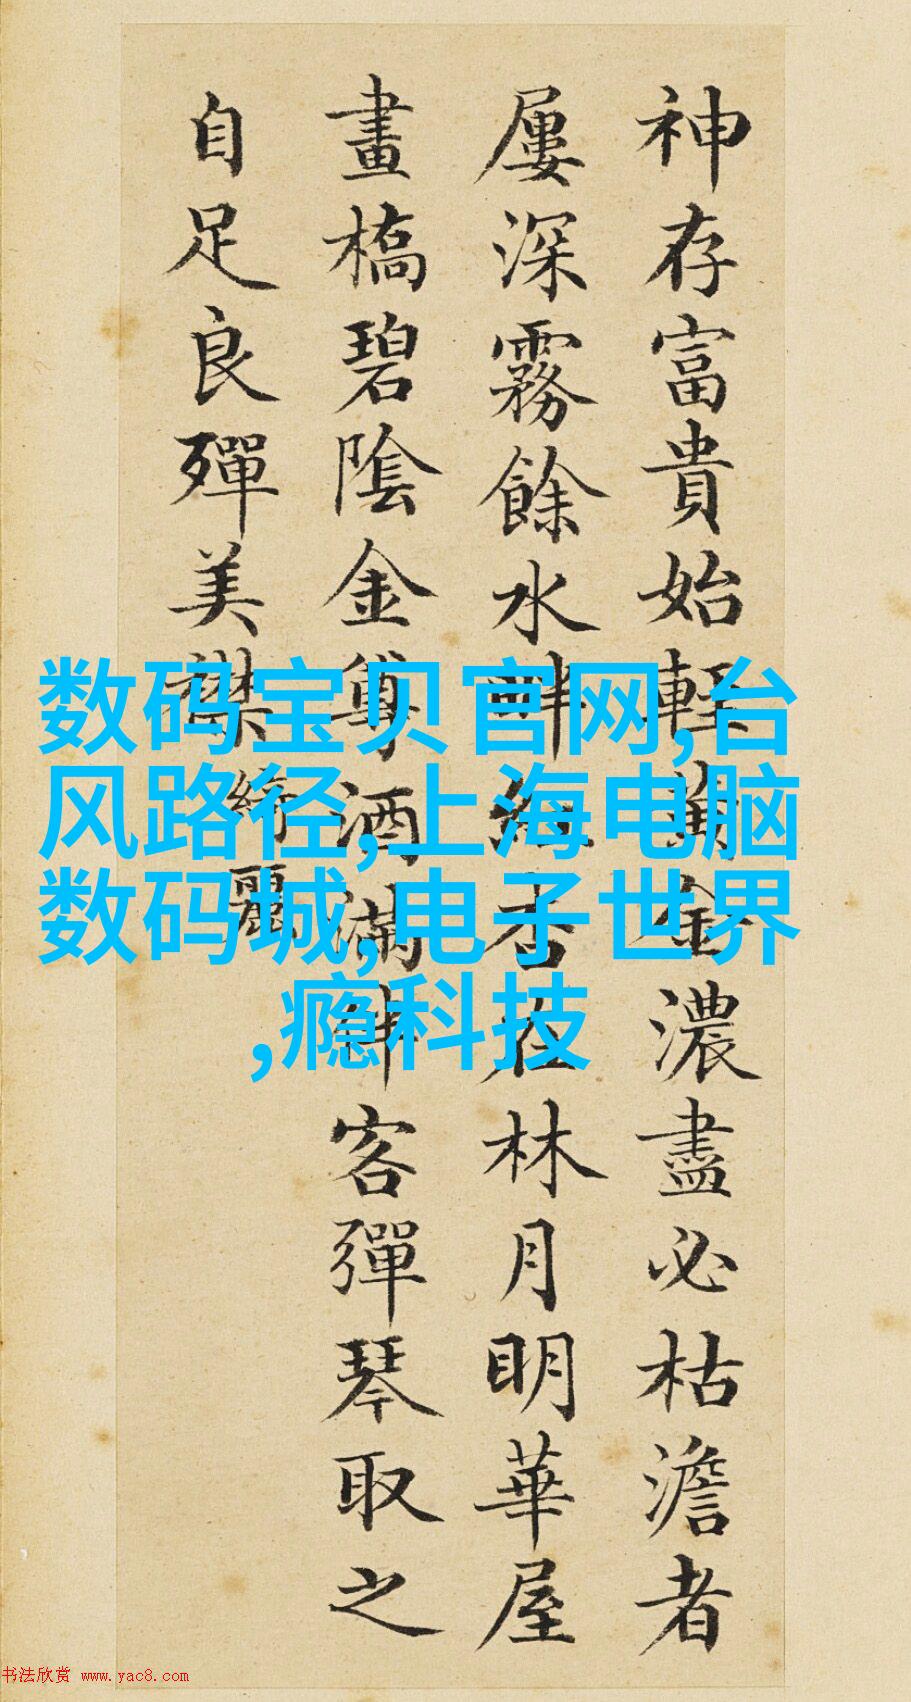 神存富貴始輕黃金濃盡必枯澹者
屢深霧餘水畔紅杏在林月明華屋
畫橋碧陰金尊酒滿伴客彈琴取之
自足良殫美襟綺麗
数码宝贝官网,台
风路径,上海电脑
数码城,电子世界
,瘾科技
书法欣赏 www.yac8.com